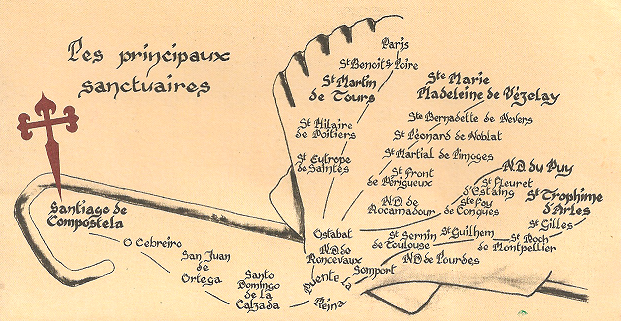 Les principaux
sanctuaires
Paris
St Benoit s/Loire
St Martin
de Tours
Ste Marie
Madeleine de Vézelay
Ste Bernadette de Nevers
St Hilaire
de Poitiers
St Léonard de Noblat
St Martial de Limoges
St Eutrope
de Saintes
St Front
de Périgueux
N.D. du Puy
St Fleuret
d'Estaing
Ste Foy
de Conques
N.D. de
Rocamadour
St Trophime
d'Arles
St Gilles
St Roch
de Montpellier
St Guilhem
St Sernin
de Toulouse
N.D de Lourdes
Ostabat
N.D de
Roncevaux
Somport
Puente la
Reina
Santiago de
Compostela
O Cebreiro
San Juan
de
Ortega
Santo
Domingo
de la
Calzada